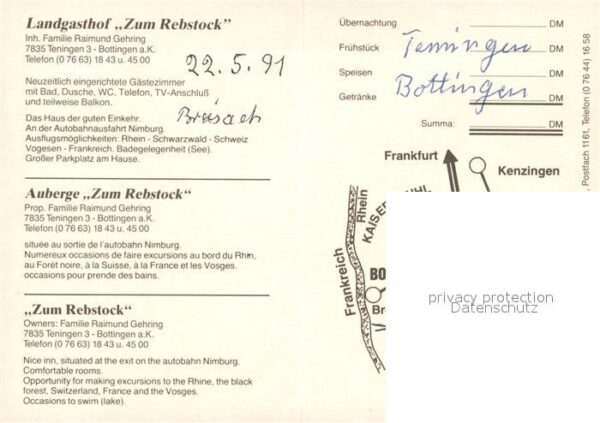 Landgasthof „Zum Rebstock”
Inh. Familie Raimund Gehring
7835 Teningen 3 - Bottingen a.K.
Telefon (0 76 63) 18 43 u. 45 00
22.5.91
Neuzeitlich eingerichtete Gästezimmer
mit Bad, Dusche, WC, Telefon, TV-Anschluß
und teilweise Balkon.
Breisach
Das Haus der guten Einkehr.
An der Autobahnausfahrt Nimburg.
Ausflugsmöglichkeiten: Rhein - Schwarzwald - Schweiz
Vogesen - Frankreich. Badegelegenheit (See).
Großer Parkplatz am Hause.
Auberge „Zum Rebstock”
Prop. Familie Raimund Gehring
7835 Teningen 3 - Bottingen a.K.
Telefon (0 76 63) 18 43 u. 45 00
située au sortie de l'autobahn Nimburg.
Numereux occasions de faire excursions au bord du Rhin,
au Forêt noire, à la Suisse, à la France et les Vosges.
occasions pour prende des bains.
„Zum Rebstock“
Owners: Familie Raimund Gehring
7835 Teningen 3 - Bottingen a.K.
Telefon (0 76 63) 18 43 u. 45 00
Nice inn, situated at the exit on the autobahn Nimburg.
Comfortable rooms.
Opportunity for making excursions to the Rhine, the black
forest, Switzerland, France and the Vosges.
Occasions to swim (lake).
Übernachtung DM
Frühstück DM
Teningen
Speisen DM
Bottingen
Getränke DM
Summa: DM
Postfach 1161, Telefon (0 76 44) 16 58
Frankfurt
Kenzingen
Rhein
KAISER UHL
Frankreich
BO
Br
privacy protection
Datenschutz